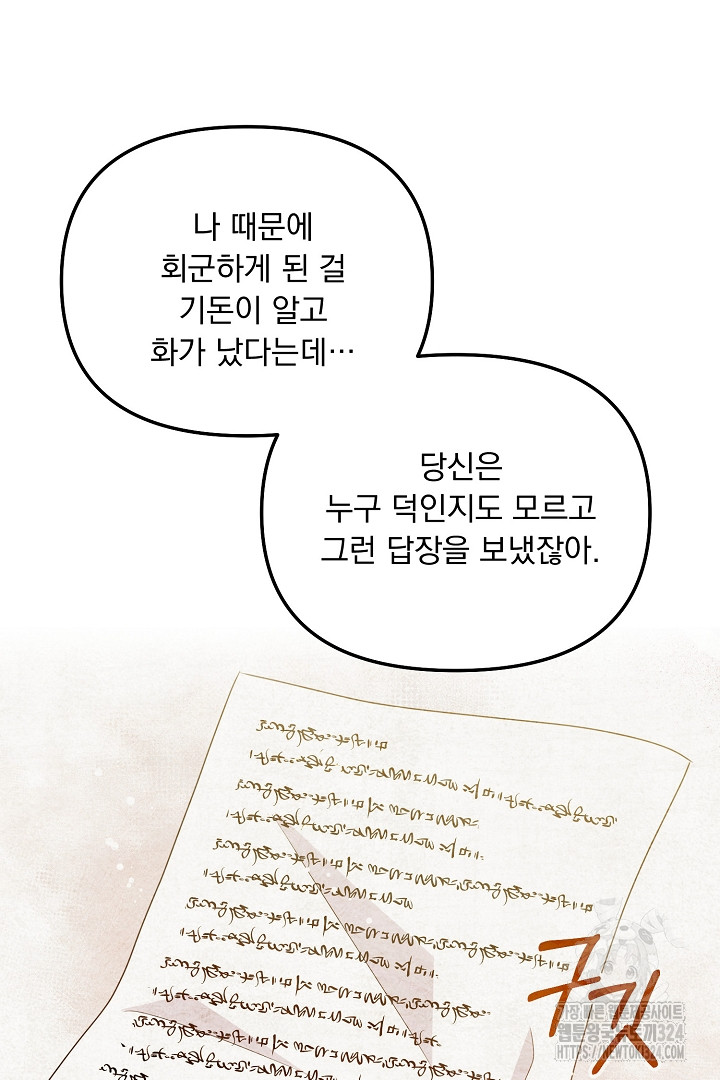 나 때문에
회군하게 된 걸
기돈이 알고
화가 났다는데…
당신은
누구 덕인지도 모르고
그런 답장을 보냈잖아.
구깃
가장 빠른 웹툰제공사이트
웹툰왕국뉴토끼324
HTTPS://NEWTOKI324